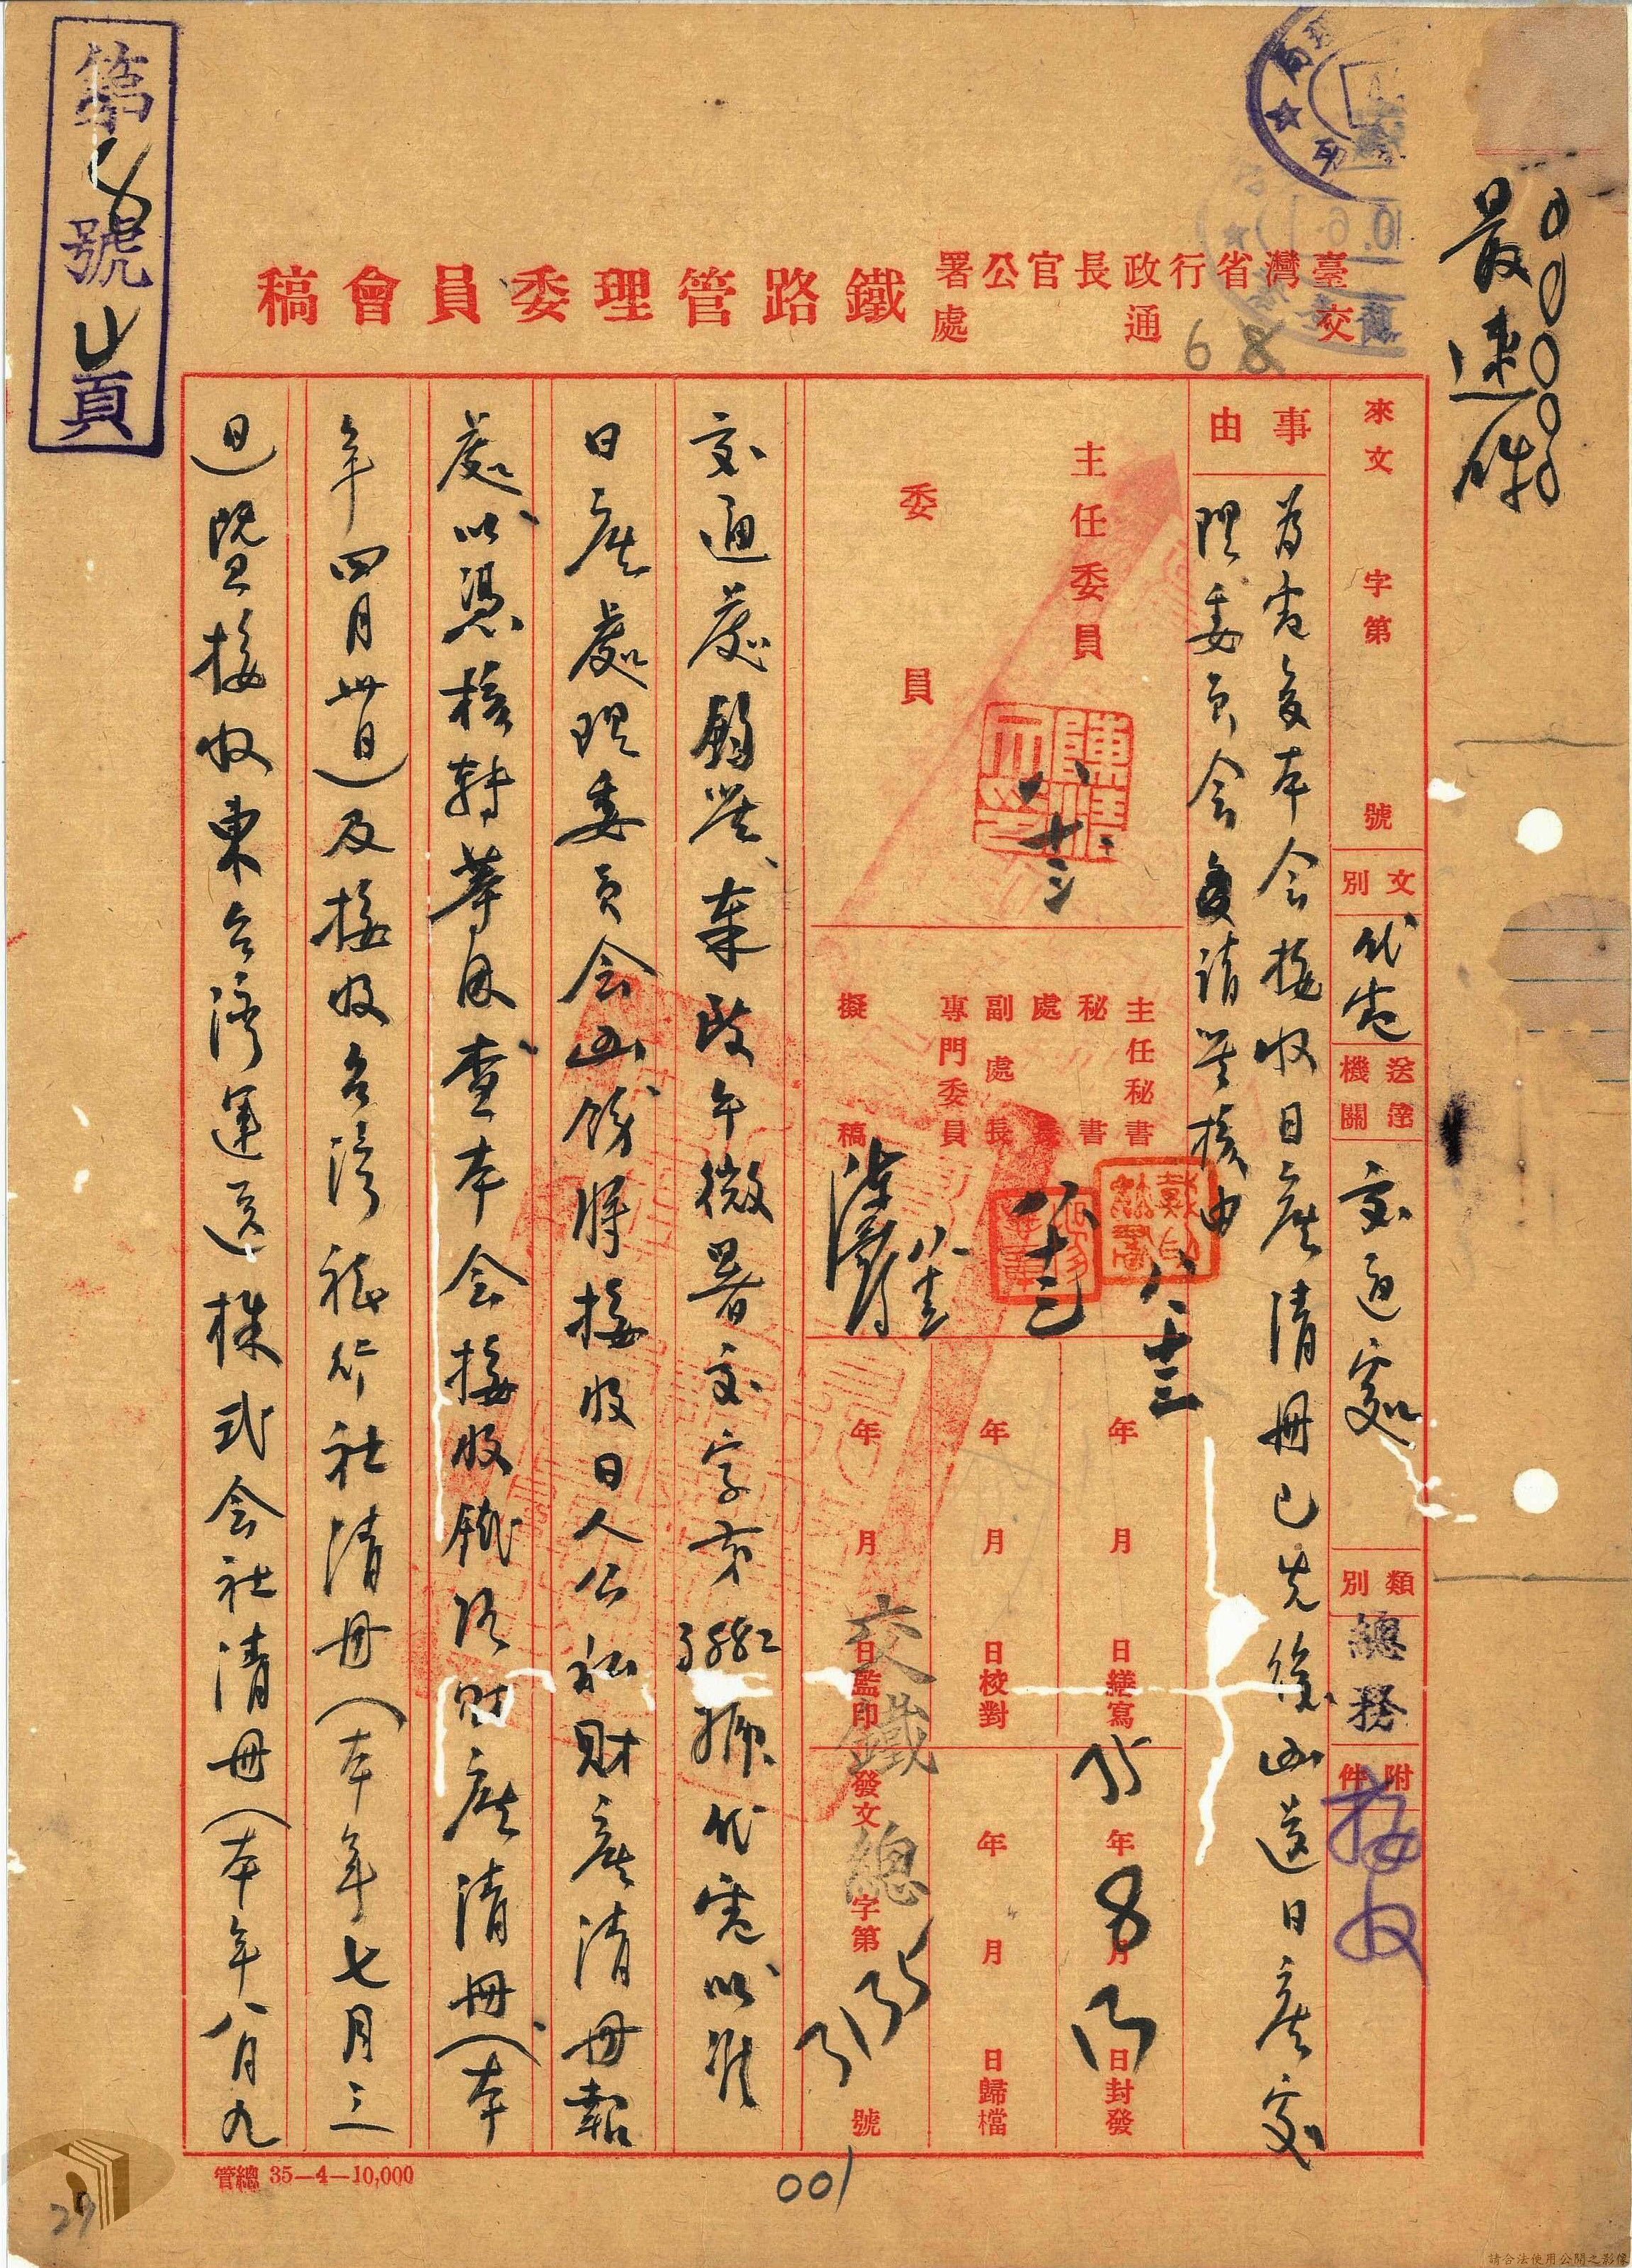 最速件
臺灣省行政長官公署
交通處
鐵路管理委員會稿
第 號 頁
68
來文 字第 號
文別 代電
送達機關 交通處
類別 總務
附件
接收
事由
為電復本會接收日產清冊已先後函送日產處
理委員會 請鑒核由
主任委員
八、十三
委員
主任秘書
秘書
處長
副處長
專門委員
擬稿
八十三
八十三
年 月 日繕寫
年 月 日校對
年 月 日監印
35年8月15日封發
年 月 日歸檔
發文 交鐵總 字第 號
交通處鈞鑒、奉致午微署交字第 號代電以准
日產處理委員會函飭將接收日人公私財產清冊報
處以憑核轉等因查本會接收鐵路財產清冊(本
年四月卅日)及接收台灣旅行社清冊(本年七月三
日)暨接收東台灣運送株式会社清冊(本年八月九
管總 35—4—10,000
001
29
請合法使用公開之影像